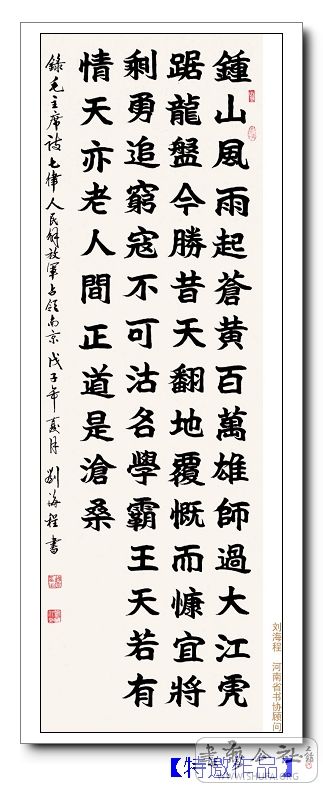 鍾山風雨起蒼黄百萬雄師過大江虎
踞龍盤今勝昔天翻地覆慨而慷宜將
剩勇追窮寇不可沽名學霸王天若有
情天亦老人間正道是滄桑
錄毛主席詩七律人民解放軍占領南京戊子年夏月劉海程書
刘海程 河南省书协顾问
【特邀作品】